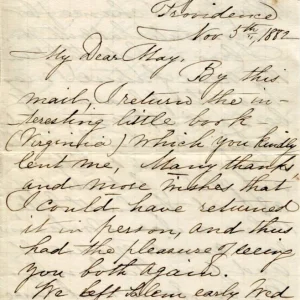 Providence
Nov 5th, 1882
My Dear May,
By this
mail, I return the in-
teresting little book
(Virginia) which you kindly
lent me, Many thanks
and more wishes that
I could have returned
it in person, and thus
had the pleasure of seeing
you both again.
We left Salem early Wed